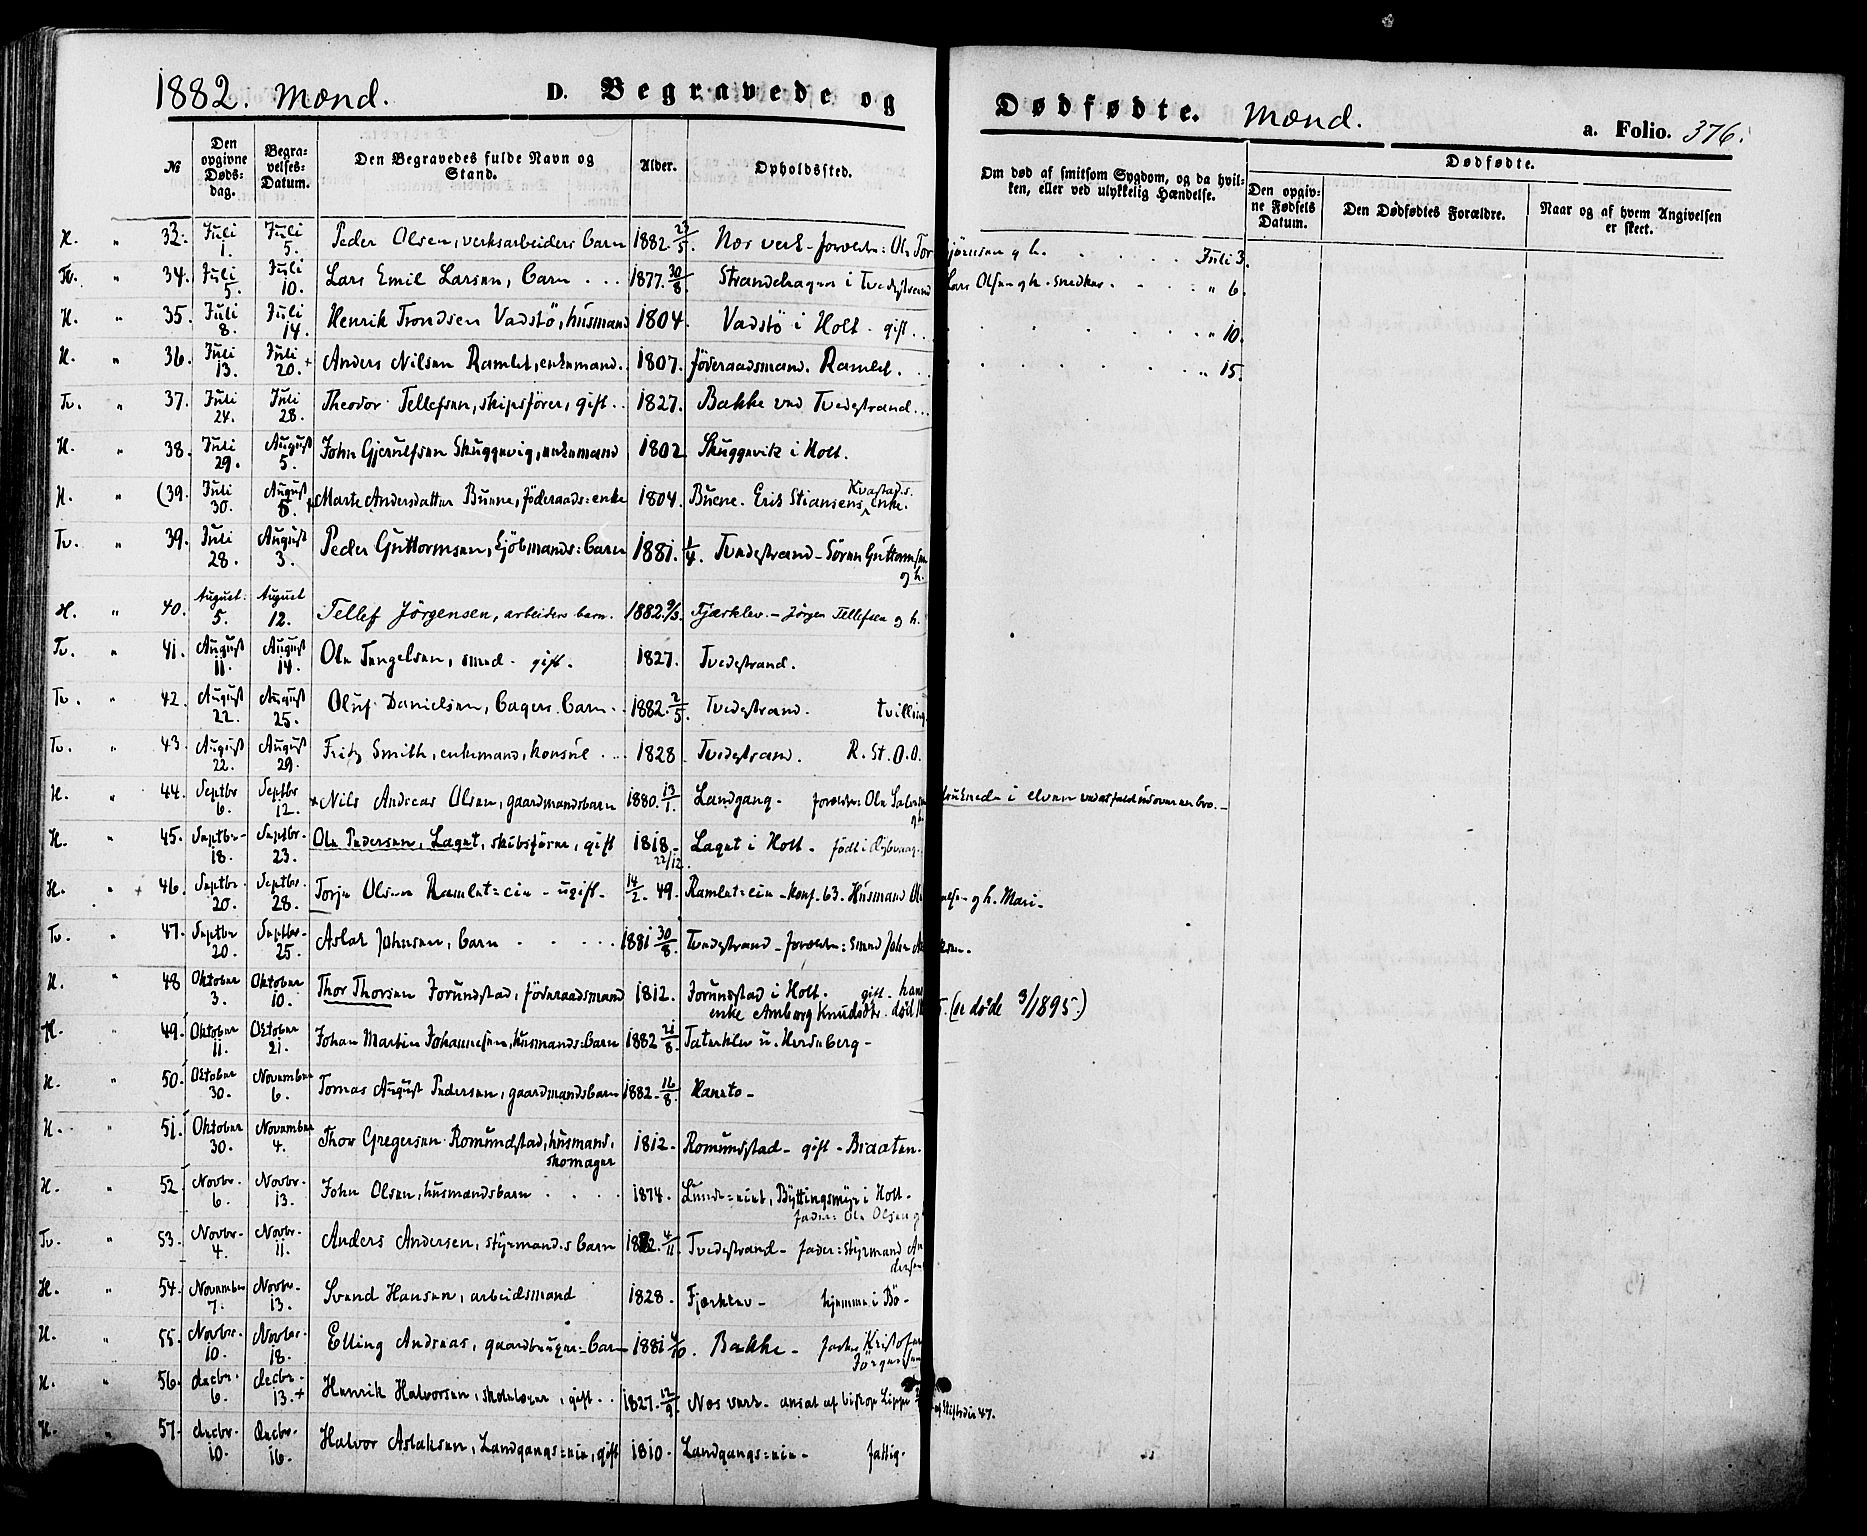 1882. Mænd. D. Begravede og Dødfødte. Mænd. a. Folio. 376.
№ Den opgivne Døds-dag. Begra-velses-Datum. Den Begravedes fulde Navn og Stand. Alder. Opholdssted. Om død af smitsom Sygdom, og da hvil-ken, eller ved ulykkelig Hændelse. Dødfødte.
Den opgiv-ne Fødsels Datum. Den Dødfødtes Forældre. Naar og af hvem Angivelsen er skeet.
H. " 33. Juli 1. Juli 5. Peder Olsen, verksarbeiders barn 1882. 29/5. Næs verk - forældre: Ole Torbjörnsen og h. Juli 3.
Tv. " 34. Juli 5. Juli 10. Lars Emil Larsen, barn 1877. 30/8. Strandehagen i Tvedestrand Lars Olsen og h. snedker. " 6.
H. " 35. Juli 8. Juli 14. Henrik Trondsen Vadstö, husmand 1804. Vadstö i Holt. gift. " 10.
H. " 36. Juli 13. Juli 20. + Anders Nilsen Ramlet, enkemand. 1807. föderaadsmand. Ramlet. " 15.
Tv. " 37. Juli 24. Juli 28. Theodor Tellefsen, skipsförer, gift 1827. Bakke ved Tvedestrand.
H. " 38. Juli 29. August 5. John Gjerulfsen Skuggevig, enkemand 1802 Skuggevik i Holt.
H. " (39. Juli 30. August 5. + Marte Andersdatter Buene, föderaads=enke 1804. Buene. Erik Stiansens Kvastads. enke.
Tv. " 39. Juli 28. August 3. Peder Guttormsen, Sjömands=barn 1881. 1/4. Tvedestrand - Sören Guttormsen og h.
H. " 40. August 5. August 12. Tellef Jörgensen, arbeiders barn. 1882. 9/3. Fjærklev. - Jörgen Tellefsen og h.
Tv. " 41. August 11. August 14. Ole Tengelsen, smed. gift. 1827. Tvedestrand.
Tv. " 42. August 22. August 25. Oluf Danielsen, bagers barn. 1882. 2/5. Tvedestrand. tvilling
Tv. " 43. August 22. August 29. Fritz Smith, enkemand, konsul 1828 Tvedestrand. R. St. O. O.
H. " 44. Septbr 6. Septbr 12. + Nils Andreas Olsen, gaardmandsbarn 1880. 13/1. Landgang. forældre: Ole druknede i elven ved at falde ud over en bro. -
H. " 45. Septbr- 18. Septbr- 23. Ole Pedersen, Laget, skibsförer, gift 1818. 22/12. Laget i Holt. födt i Dybvaag.
H. " + 46. Septbr- 20. Septbr. 28. Torje Olsen Ramlet=eie - ugift. 14/2. 49. Ramlet=eie - konf. 63. Husmand og h. Mari -
Tv. " 47. Septbr 20. Septbr- 25. Aslak Johnsen, barn 1881 30/8. Tvedestrand - forældre: smed John
H. " 48 Oktober 3. Oktober 10. Thor Thorsen Jorundstad, föderaadsmand 1812. Jorundstad i Holt. gift. hans
enke Amborg Knudsdtr. död (se döde 3/1895.)
H. " 49. Oktober 11. Oktober 21. Johan Martin Johannesen, husmands=barn 1882 21/8. Taterklev u. Herdeberg -
H. " 50. Oktober 30. November 6. Tomas August Pedersen, gaardmandsbarn 1882. 16/8. Hanto -
H. " 51. Oktober 30. November 4. Thor Gregersen Romundstad, husmand, skomager 1812. Romundstad - gift - Braaten.
H. " 52. Novbr. 6. Novbr. 13. John Olsen, husmandsbarn 1874. Lunde=eiet, Byttingsmyr i Holt -
fader: Ole Olsen og
Tv. " 53. Novbr- 4. Novbr. 11. Anders Andersen, styrmands barn 1882. 4/11. Tvedestrand - fader: styrmand Andersen
H. " 54. November 7. Novbr- 13. Svend Hansen, arbeidsmand 1828. Fjærklev - hjemme i Bö -
H. " 55. Novbr. 10. Novbr. 18. Elling Andreas, gaardbruger=barn 1881 4/10. Bakke - fader Kristofer Jörgensen
H. " 56. decbr- 6. decbr. 13. + Henrik Halvorsen, skolelærer, gift 1827. 12/9. Næs verk - ansat af biskop
H. " 57. decbr. 10. decbr. 16. Halvor Aslaksen, Landgangs=eie, gift 1810. Landgangs=eie - fattig.